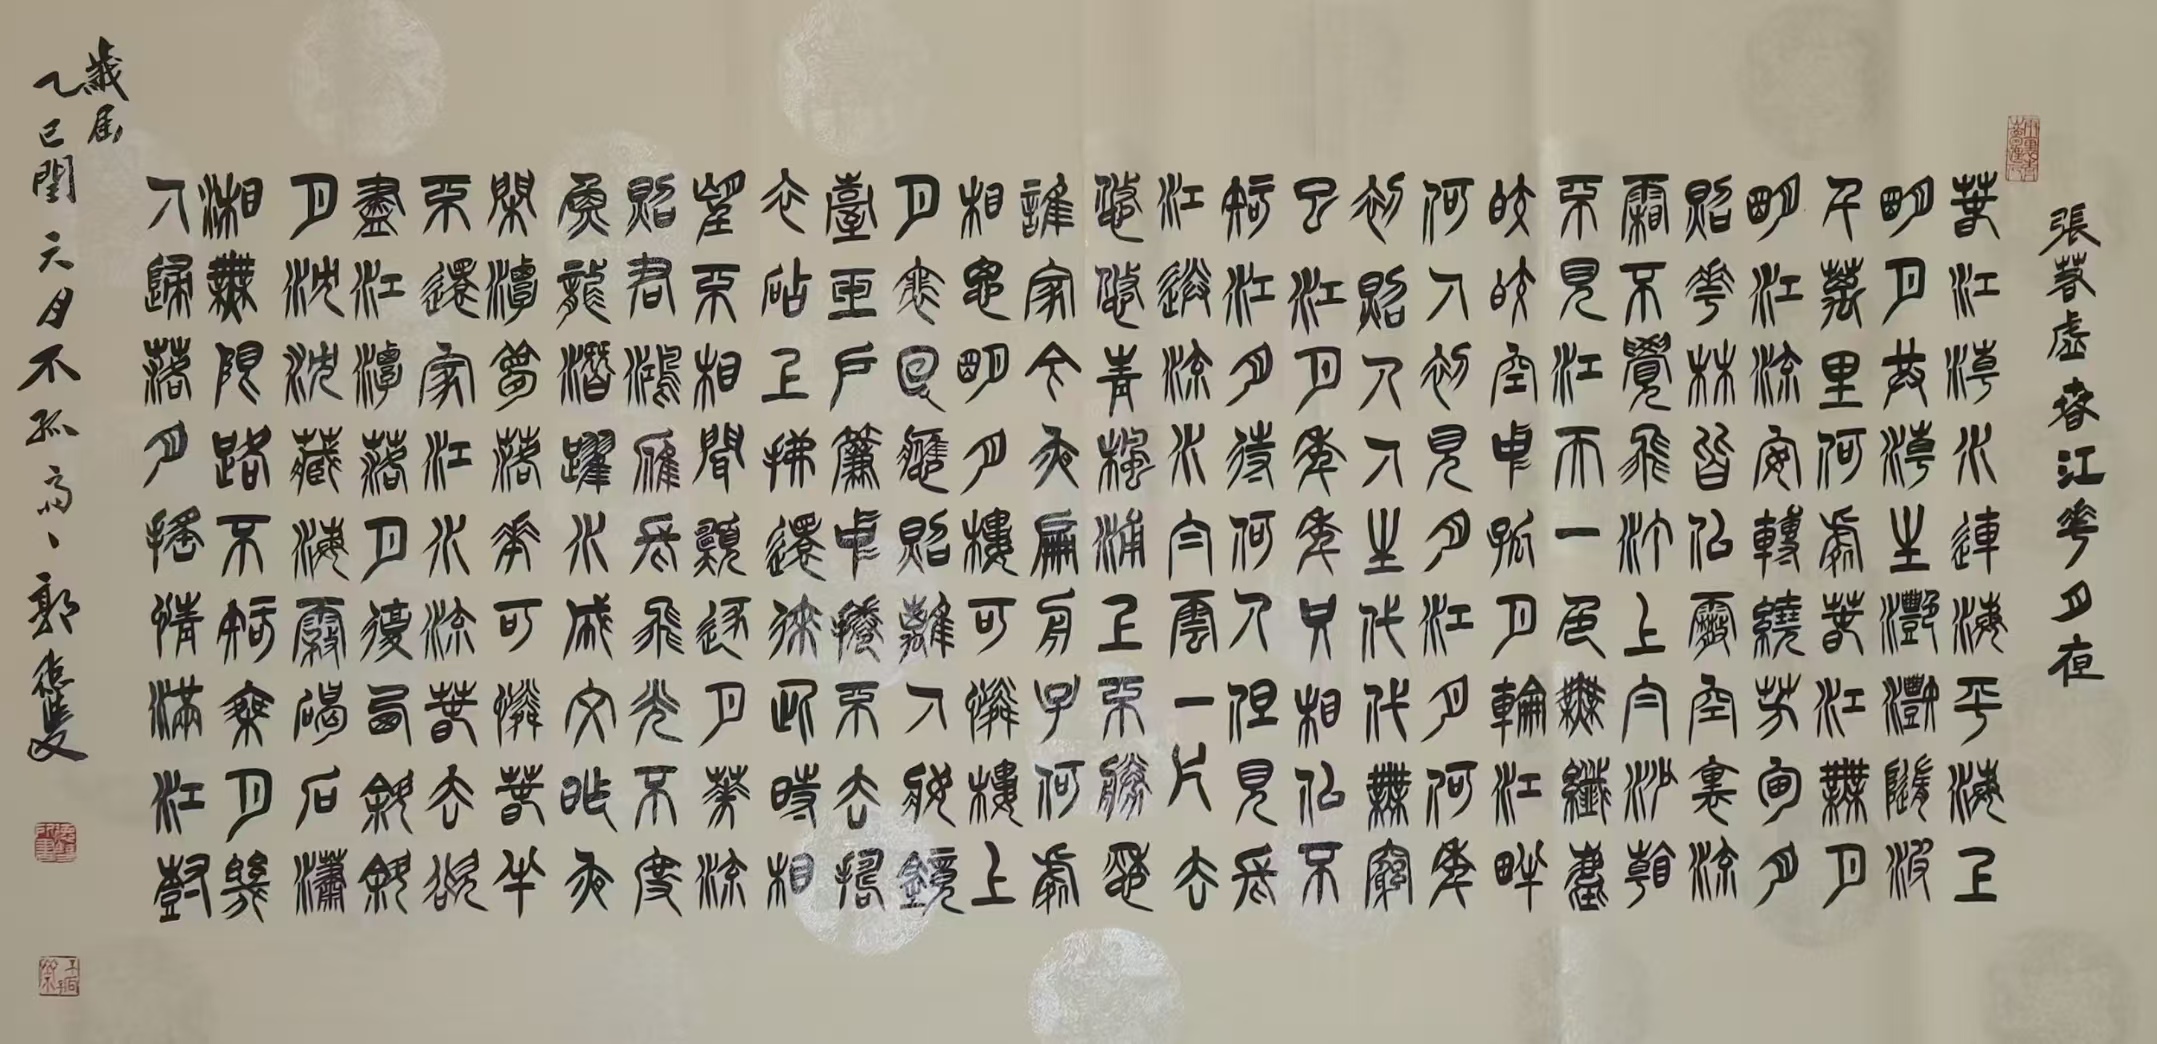 張若虛春江花月夜
春江潮水連海平海上
明月共潮生灩灩隨波
千萬里何處春江無月
明江流宛轉繞芳甸月
照花林皆似霰空裏流
霜不覺飛汀上白沙看
不見江天一色無纖塵
皎皎空中孤月輪江畔
何人初見月江月何年
初照人人生代代無窮
已江月年年只相似不
知江月待何人但見長
江送流水白雲一片去
悠悠青楓浦上不勝愁
誰家今夜扁舟子何處
相思明月樓可憐樓上
月裴回應照離人妝鏡
臺玉戶簾中捲不去搗
衣砧上拂還來此時相
望不相聞願逐月華流
照君鴻雁長飛光不度
魚龍潛躍水成文昨夜
閑潭夢落花可憐春半
不還家江水流春去欲
盡江潭落月復西斜斜
月沈沈藏海霧碣石瀟
湘無限路不知乘月幾
人歸落月搖情滿江樹
歲屆
乙巳閏六月不孤齋郭